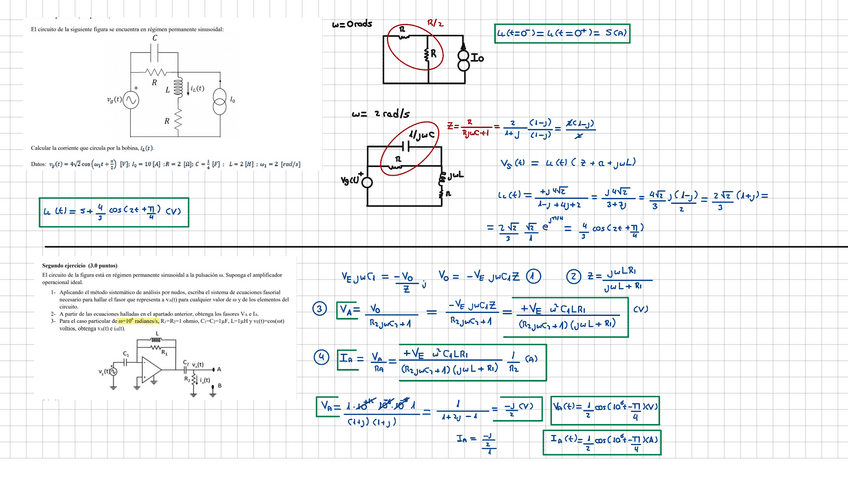 El circuito de la siguiente figura se encuentra en régimen permanente sinusoidal:
C
R
L
i_L(t)
v_g(t)
+
I_0
R
Calcular la corriente que circula por la bobina, i_L(t).
Datos: v_g(t) = 4√2 cos(ω_1t + π/2) [V]; I_0 = 10 [A] ; R = 2 [Ω]; C = 1/4 [F] ; L = 2 [H] ; ω_1 = 2 [rad/s]
iL(t) = 5 + 4/3 cos(2t + π/4) (V)
ω=0rads
R/2
R
R
Io
iL(t=0⁻) = iL(t=0⁺) = 5(A)
ω= 2 rad/s
1/jωC
R
Vg(t)
+
jωL
R
Z= R/(RjωC+1) = 2/(1+j) (1-j)/(1-j) = 2(1-j)/2
Vg(t) = iL(t) (Z + R + jωL)
iL(t) = +j4√2/(1-j+4j+2) = j4√2/(3+3j) = 4√2/3 j(1-j)/2 = 2√2/3 (1+j) =
= 2√2/3 √2/1 e^(jπ/4) = 4/3 cos(2t+π/4)
Segundo ejercicio (3.0 puntos)
El circuito de la figura está en régimen permanente sinusoidal a la pulsación ω. Suponga el amplificador
operacional ideal.
1- Aplicando el método sistemático de análisis por nudos, escriba el sistema de ecuaciones fasorial
necesario para hallar el fasor que representa a v_A(t) para cualquier valor de ω y de los elementos del
circuito.
2- A partir de las ecuaciones halladas en el apartado anterior, obtenga los fasores V_A e I_A.
3- Para el caso particular de ω=10⁶ radianes/s, R_1=R_2=1 ohmio, C_1=C_2=1μF, L=1μH y v_E(t)=cos(ωt)
voltios, obtenga v_A(t) e i_A(t).
L
R_1
C_1
C_2 v_A(t)
A
v_E(t)
R_2
i_A(t)
B
VE jωC1 = -Vo/Z ; Vo = -VE jωC1Z ①
② Z = jωLR1/(jωL+R1)
③ VA = Vo/(R2jωC2+1) = -VE jωC1Z/(R2jωC2+1) = +VE ω²C1LR1/((R2jωC2+1)(jωL+R1)) (V)
④ IA = VA/RA = +VE ω²C1LR1/((R2jωC2+1)(jωL+R1)) 1/R2 (A)
= 1/(1+2j-1) = -j/2 (V)
VA(t) = 1/2 cos(10⁶t-π/4)(V)
IA = -j/2/1
IA(t) = 1/2 cos(10⁶t-π/4)(A)